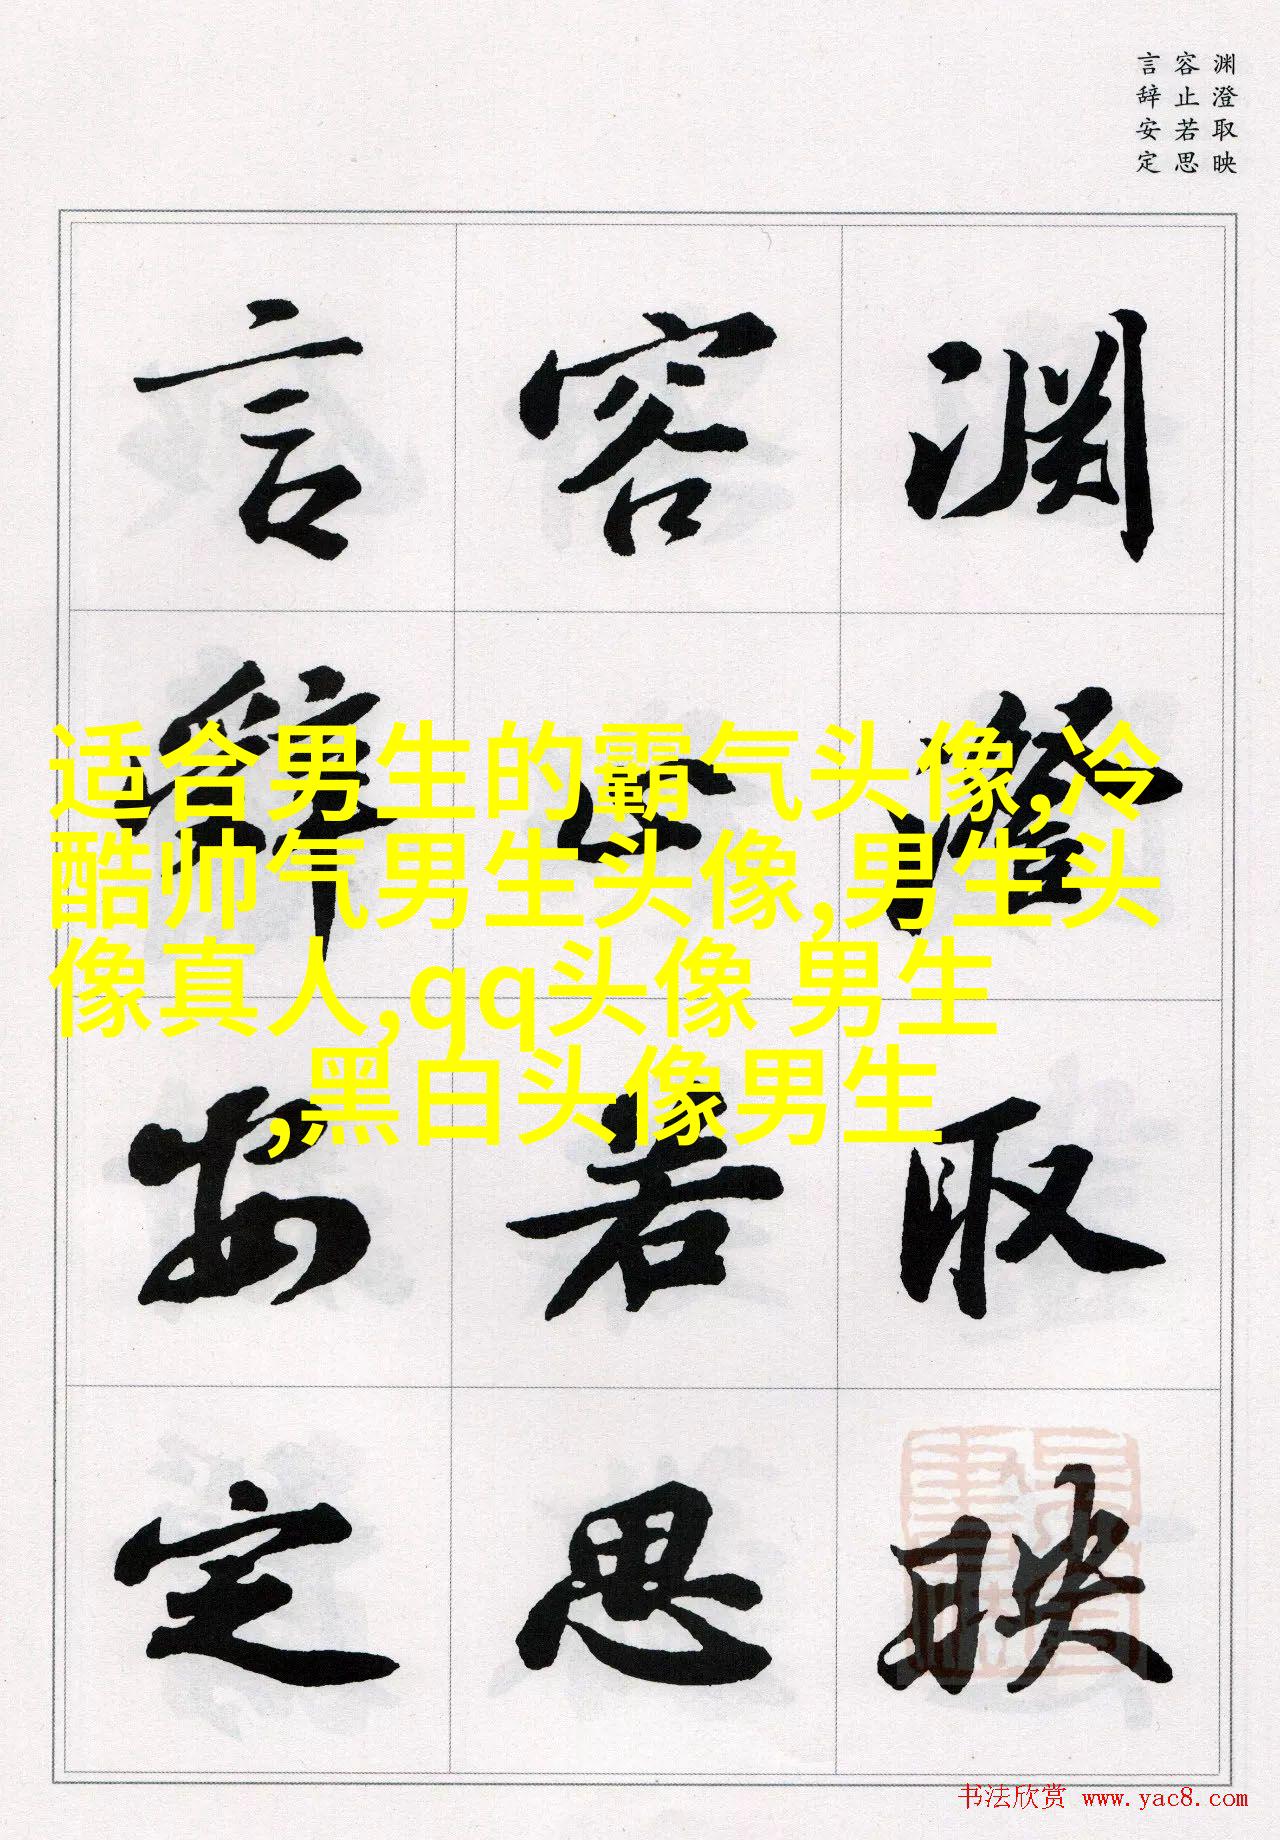 渊澄取映
容止若思
言辞安定
渊澄取映
容止若思
言辞安定
适合男生的霸气头像,冷
酷帅气男生头像,男生头
像真人,qq头像 男生
,黑白头像男生
书法欣赏 www.yac8.com